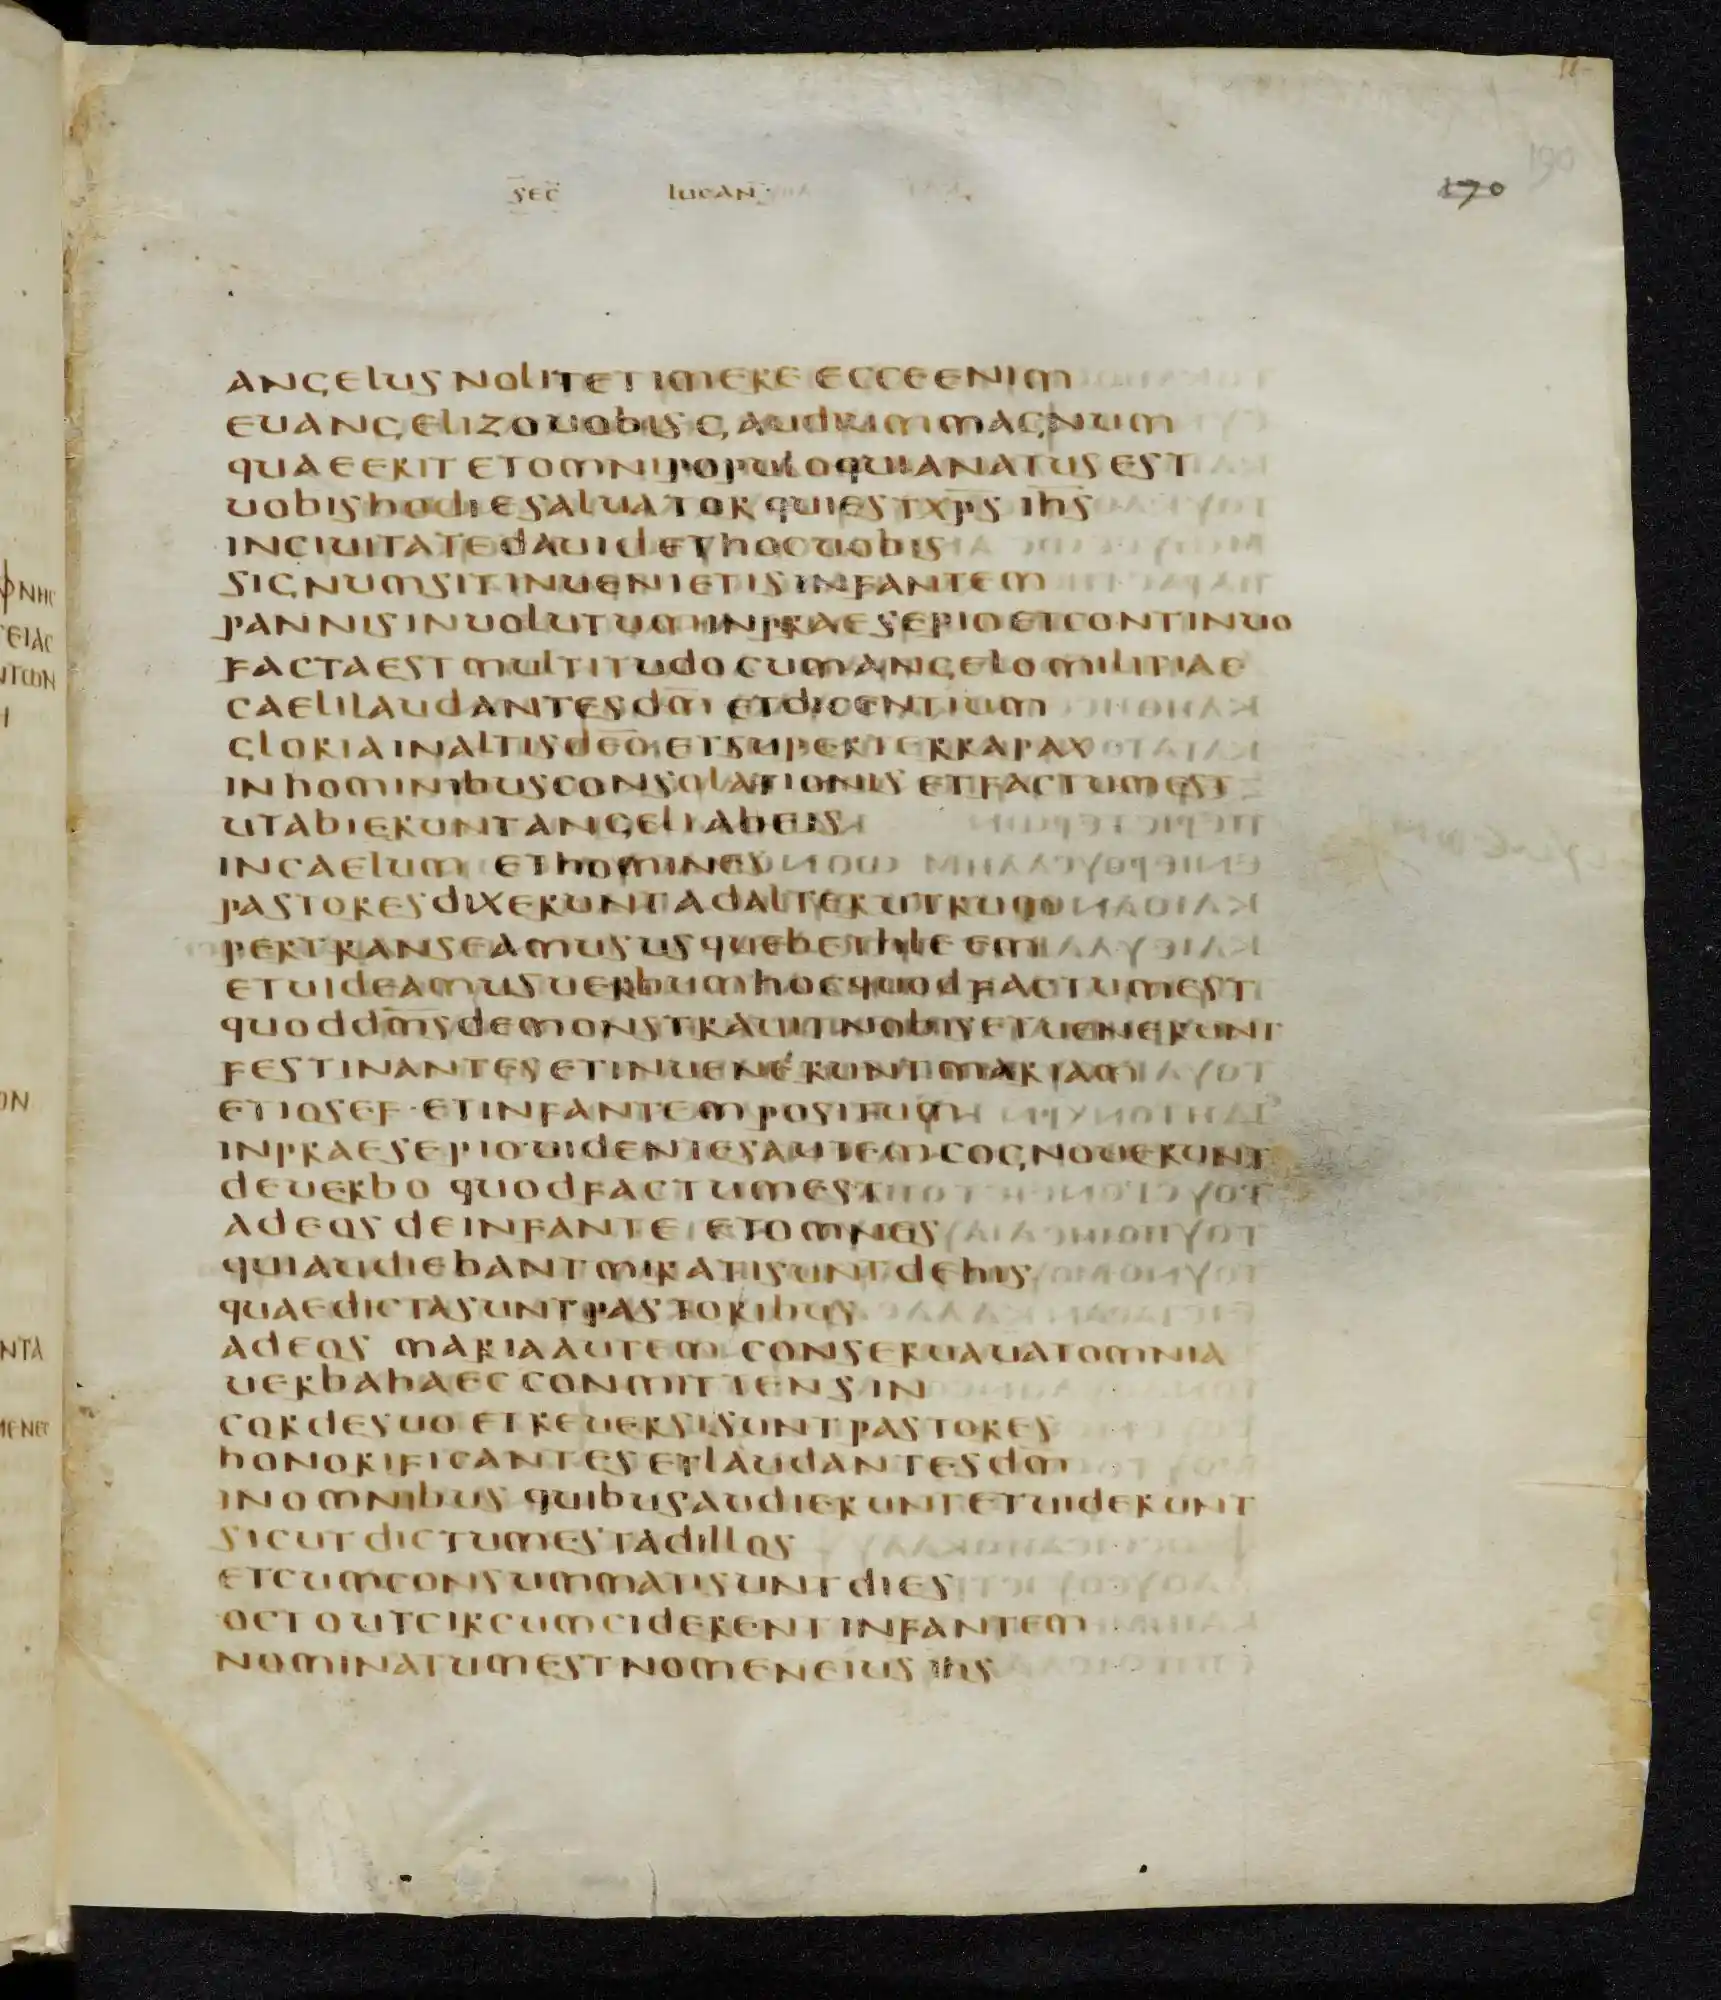 sec̅ lucan
170
190
angelus nolite timere ecce enim
euangelizo uobis gaudium magnum
quae erit et omni populo quia natus est
uobis hodie saluator qui est xp̅s ih̅s
in ciuitate dauid et hoc uobis
signum sit inuenietis infantem
pannis inuolutum in praesepio et continuo
facta est multitudo cum angelo militiae
caeli laudantes dm̅ et dicentium
gloria in altis deo̅ et super terra pax
in hominibus consolationis et factum est
ut abierunt angeli ab eis
in caelum et homines
pastores dixerunt ad alterutrum
pertranseamus usque bethleem
et uideamus uerbum hoc quod factum est
quod dm̅s demonstrauit nobis et uenerunt
festinantes et inuenerunt mariam
et iosef · et infantem positum
in praesepio uidentes autem cognouerunt
de uerbo quod factum est
ad eos de infante et omnes
qui audiebant mirati sunt de his
quae dicta sunt pastoribus
ad eos maria autem conseruauat omnia
uerba haec conmittens in
corde suo et reuersi sunt pastores
honorificantes et laudantes dm̅
in omnibus quibus audierunt et uiderunt
sicut dictum est ad illos
et cum consummati sunt dies
octo ut circumciderent infantem
nominatum est nomen eius ih̅s